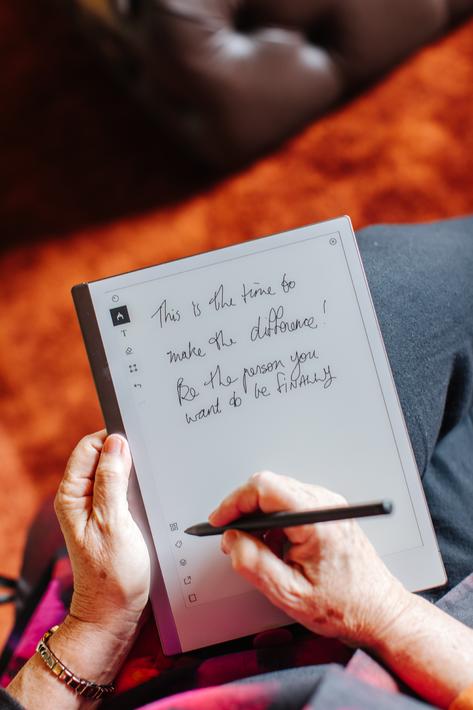 This is the time to
make the difference!
Be the person you
want to be FINALLY